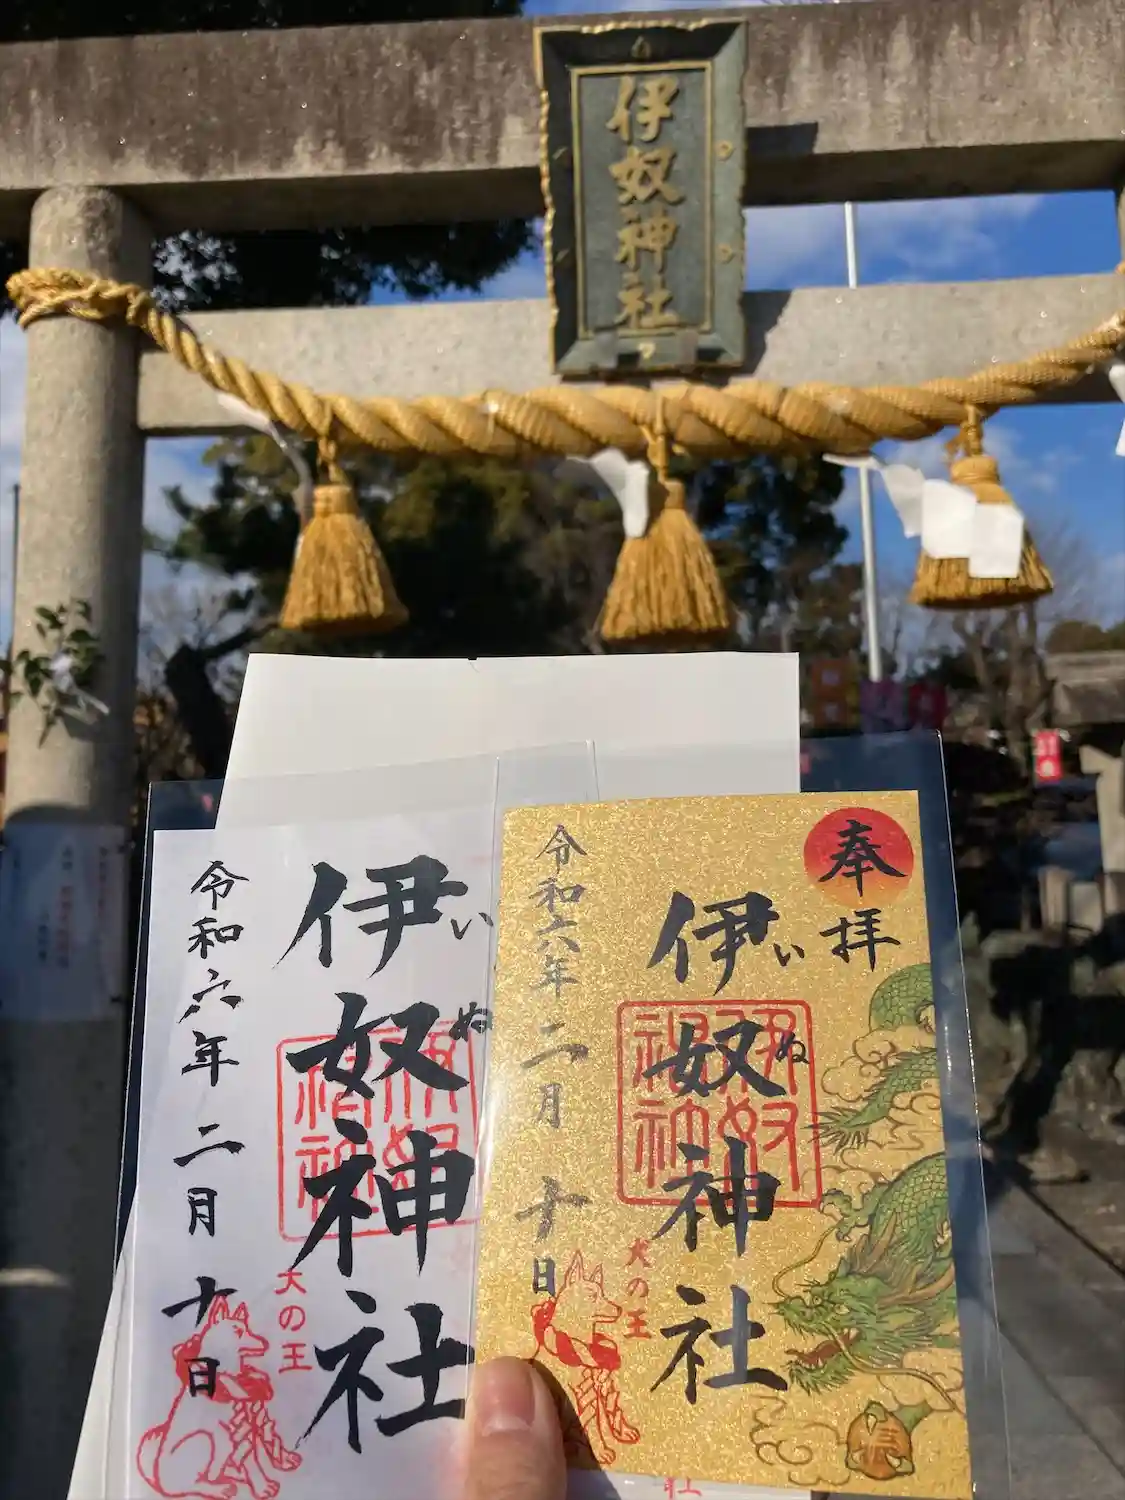 伊奴神社
奉拝
伊奴神社
いぬ
伊奴神社
犬の王
令和六年二月十日
伊奴神社
いぬ
犬の王
令和六年二月十日